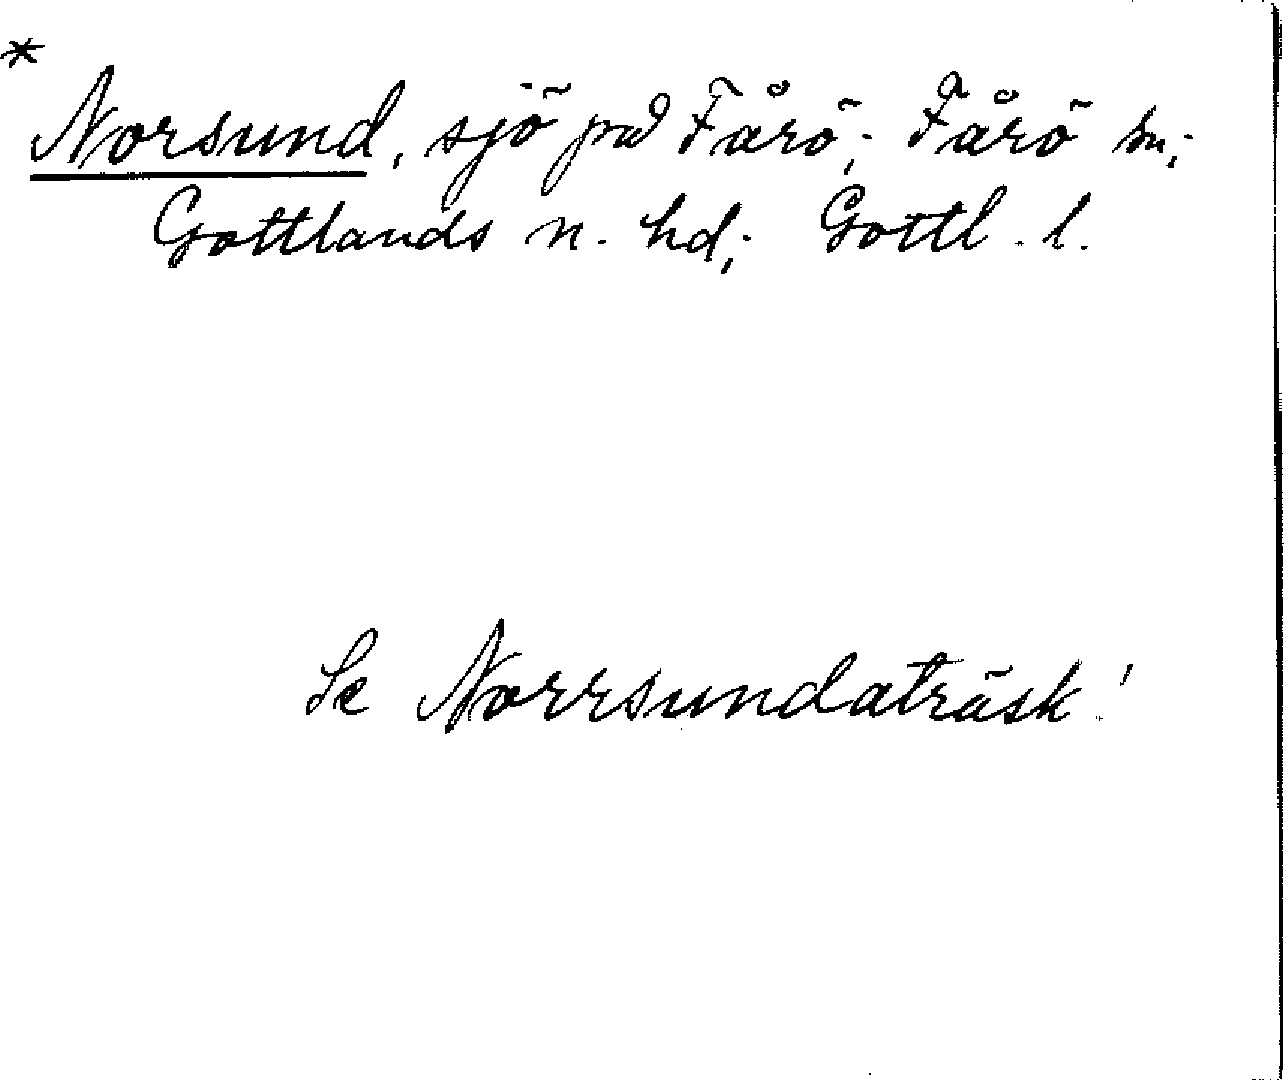 *
Norsund, sjö på Fårö; Fårö sn;
Gottlands n. hd; Gottl. l.
Se Norrsundaträsk!